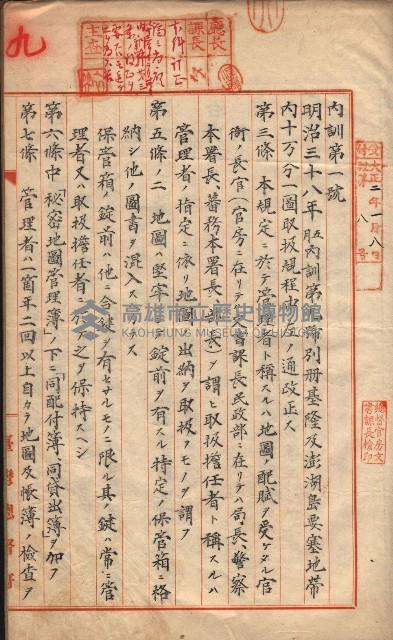 內訓第一號
明治三十八年五月內訓第一號別冊基隆及澎湖島要塞地帶
內十万分一圖取扱規程中左ノ通改正ス
第三條 本規定ニ於テ管理者ト稱スルハ地圖ノ配賦ヲ受ケタル官
衙ノ長官(官房ニ在リテハ 課長民政部ニ在リテハ局長警察
本署長蕃務本署長 課長)ヲ謂ヒ取扱擔任者ト稱スルハ
管理者ノ指定ニ依リ地圖ノ出納ヲ取扱フモノヲ謂フ
第五條ノ二 地圖ハ堅牢ナル錠前ヲ有スル特定ノ保管箱ニ格
納シ他ノ圖書ヲ混入スヘ
保管箱ノ錠前ハ他ニ合鍵ヲ有セサルモノニ限ル其ノ鍵ハ常ニ管
理者又ハ取扱擔任者ニ於テ之ヲ保持スヘシ
第六條中「秘密地圖管理簿」ノ下ニ「同配付簿、同貸出簿」ヲ加フ
第七條 管理者ハ一箇年二回以上自カラ地圖及帳簿ノ檢查ヲ
臺灣總督府
九
廳長
課長
主查
大正二年一月八日
八號
總督官房文書課長檢印
高雄市立歷史博物館
KAOHSIUNG MUSEUM OF HISTORY